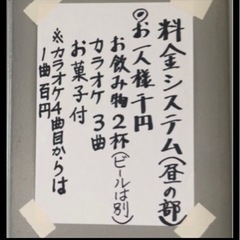 料金システム(昼の部)
◎お一人様千円
お飲み物2杯(ビールは別)
カラオケ3曲
お菓子付
※カラオケ4曲目からは
1曲百円